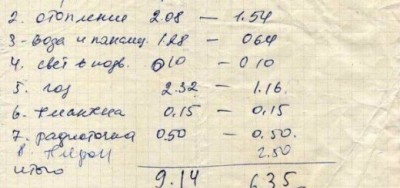 2. отопление 2.08 — 1.54
3 - вода и канализ. 1.28 — 0.64
4. свет в подв. 0.10 — 0.10
5. газ 2.32 — 1.16.
6. 0.15 — 0.15
7. радиоточка 0.50 — 0.50.
2.50
итого 9.14 6.35